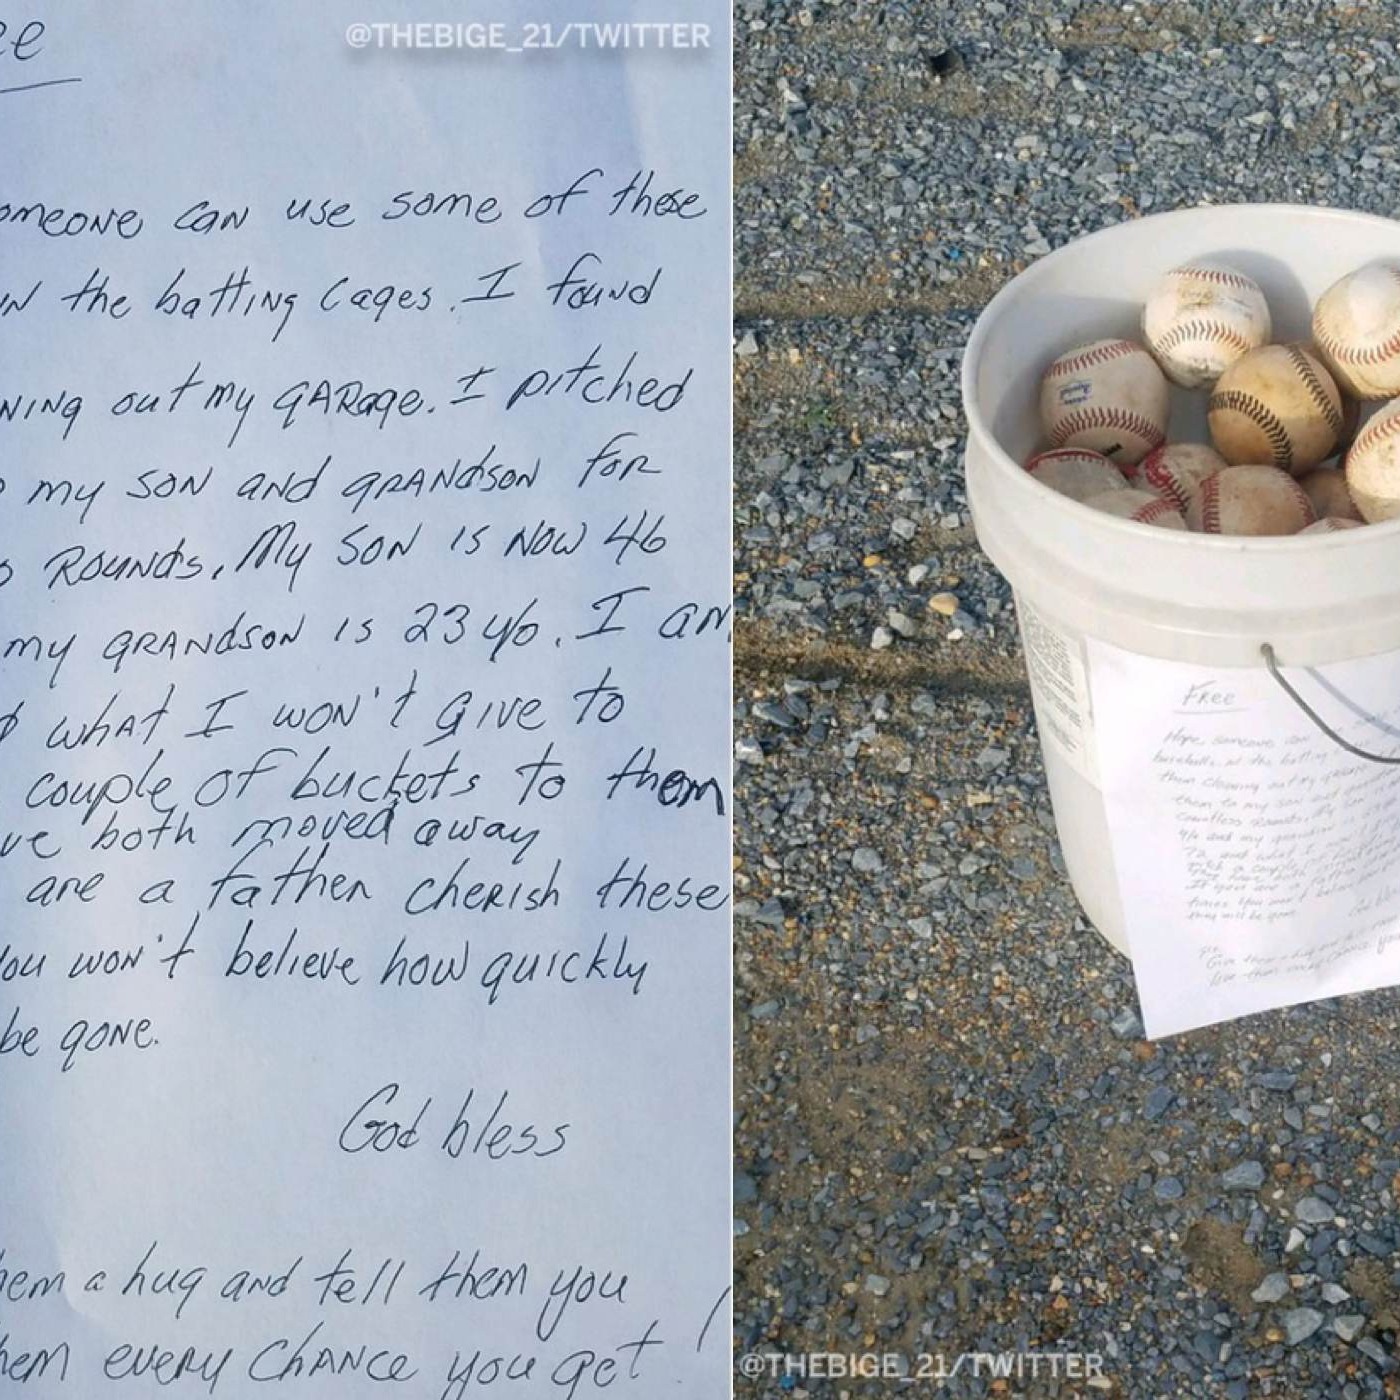 @THEBIGE_21/TWITTER
ee
omeone can use some of these
in the batting cages. I found
ning out my garage. I pitched
o my son and grandson for
s Rounds. My son is now 46
my grandson is 23 y/o. I am
d what I won't give to
couple of buckets to them
ve both moved away
are a father cherish these
You won't believe how quickly
be gone.
God bless
hem a hug and tell them you
hem every chance you get !
Free
Hope someone can
baseballs in the batting
them cleaning out my garage
them to my son and
countless Rounds. My son is
y/o and my grandson is
72 and what I won't
pitch a couple
They have both
If you are a father
times. You won't believe how
they will be gone.
God bl
P.S.
Give them a hug and tell them
love them every chance you
@THEBIGE_21/TWITTER